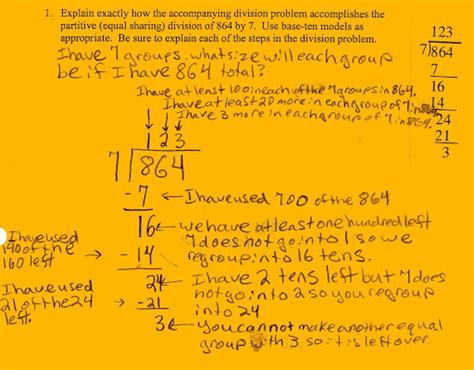 1. Explain exactly how the accompanying division problem accomplishes the
partitive (equal sharing) division of 864 by 7. Use base-ten models as
appropriate. Be sure to explain each of the steps in the division problem.
123
7)864
7
16
14
24
21
3
I have 7 groups, what size will each group
be if I have 864 total?
I have at least 100 in each of the 7 groups in 864.
I have at least 20 more in each group of 7 in 864
I have 3 more in each group of 7 in 864.
↓ ↓ ↓
123
7)864
-7 ← I have used 700 of the 864
16 ← we have at least one hundred left
7 does not go into 1 so we
regroup into 16 tens.
I have used
140 of the
160 left → -14
24 ← I have 2 tens left but 7 does
not go into 2 so you regroup
into 24
I have used
21 of the 24
left. → -21
3 ← you cannot make another equal
group with 3 so it is left over.